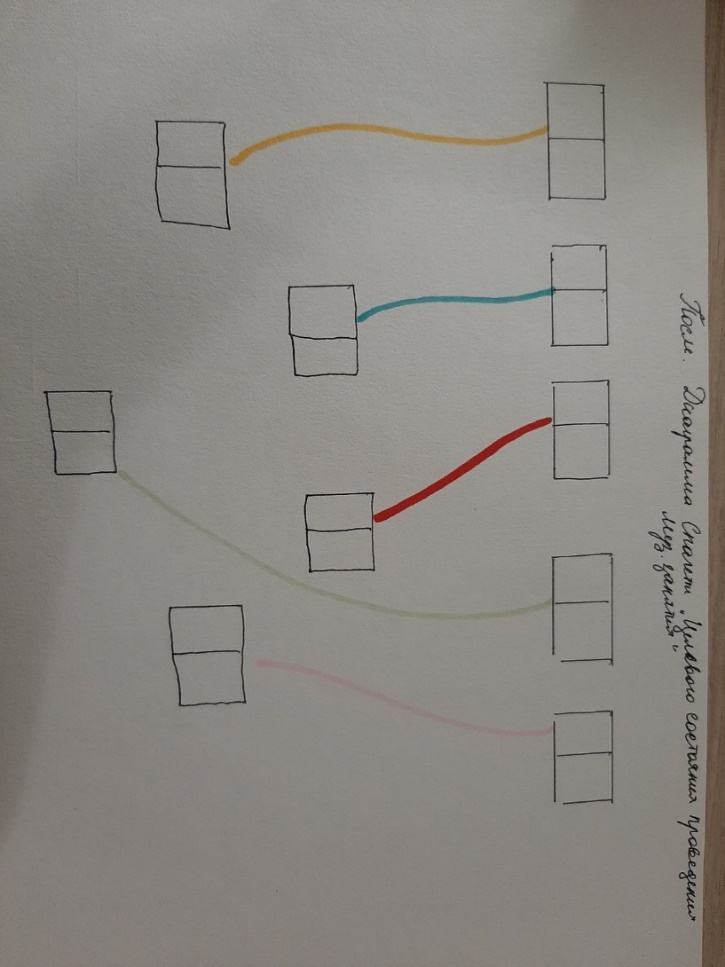 После. Диаграмма Спагети „Целевого состояния проведения
муз. занятия"